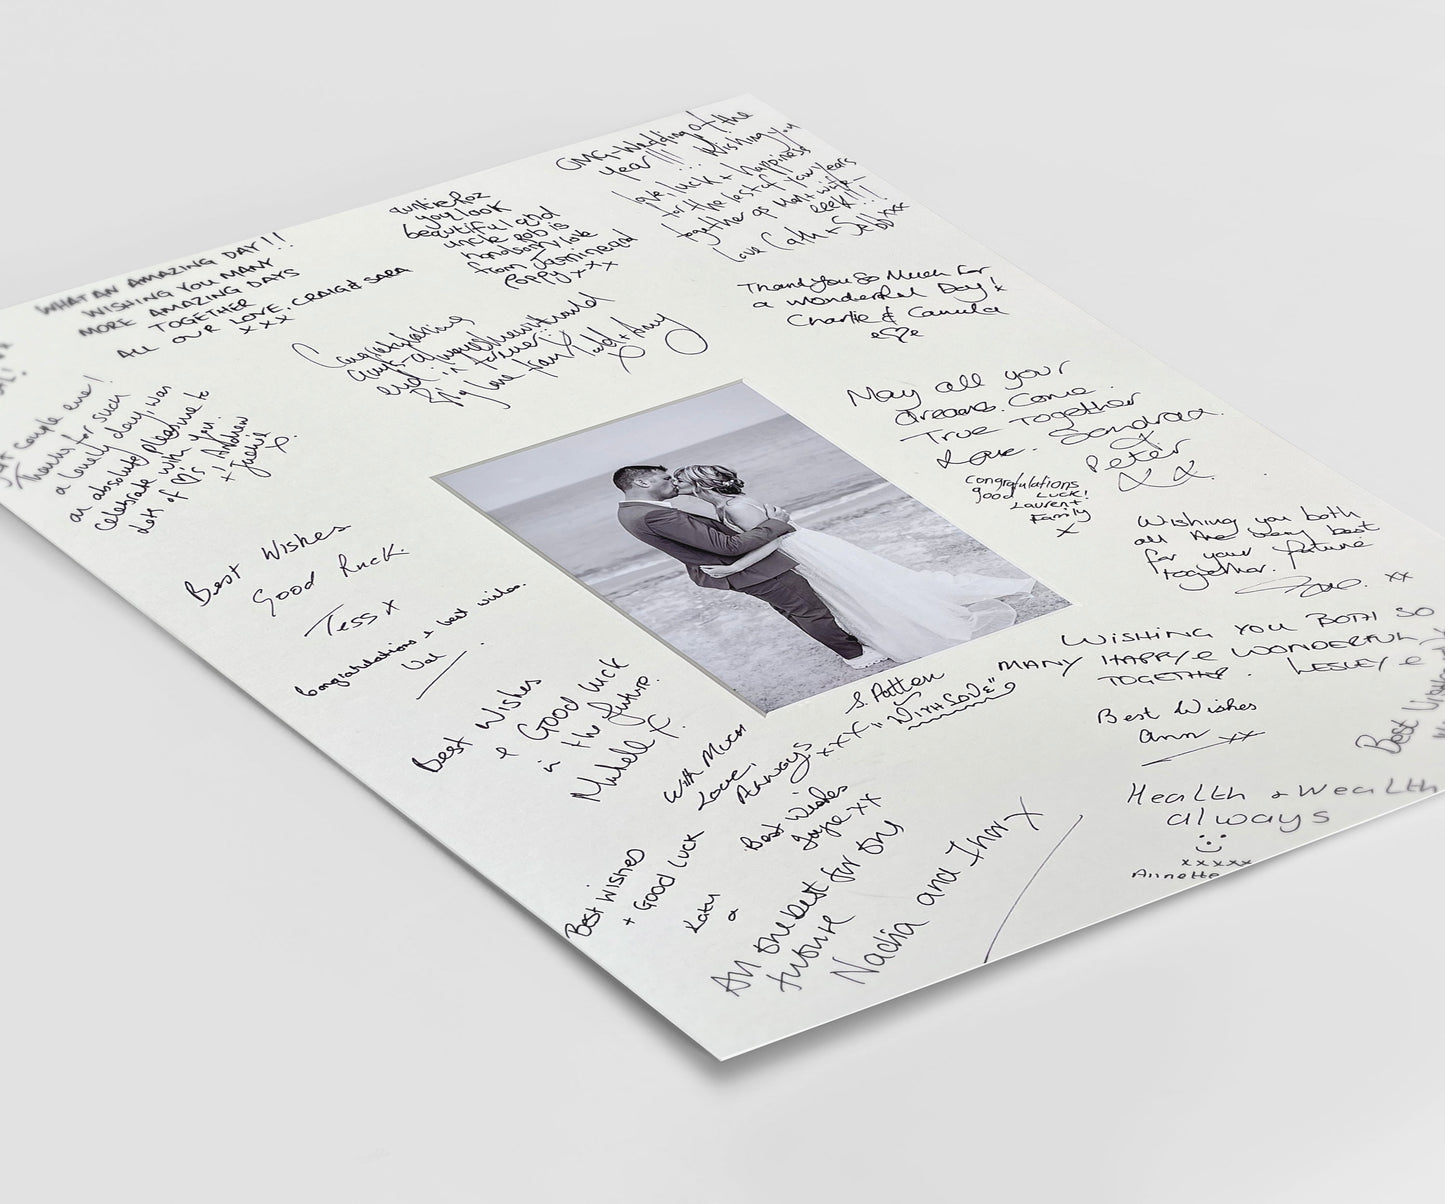 WHAT AN AMAZING DAY!!
WISHING YOU MANY
MORE AMAZING DAYS
TOGETHER
ALL OUR LOVE, CRAIG & SARA
xxx
auntie Roz
you look
beautiful and
uncle Rob is
handsom love
from Jasmine and
Poppy xxx
OMG - Wedding of the
Year!!! Wishing you
love, luck + happiness
for the rest of your years
together as man + wife -
eeek!!!
Love Cath + Sebb xxx
Thankyou So Much for
a wonderful Day! x
Charlie & Camilla
Congratulations
guys - always knew it would
end in
Big love from Todd + Amy
x
couple ever!
Thanks for such
a lovely day, was
an absolute pleasure to
celebrate with you.
Lots of ♡'s Andrew
+ Jackie x
May all your
dreams. Come
True Together
Love. Sandra
& Peter
xx
Congratulations
good Luck!
Lauren +
Family
x
Wishing you both
all the very best
for your future
together.
xx
Best Wishes
Good Luck.
Tess x
Congratulations + best wishes.
Val
Best Wishes
& Good luck
in the future.
Michelle x
S. Patten
xxx "WITH LOVE"
With Much
Love,
Always
WISHING YOU BOTH SO
MANY HAPPY & WONDERFUL
TOGETHER. LESLEY &
Best Wishes
Ann xx
Best Wishes
Best Wishes
Jayne xx
Best Wishes
+ Good Luck
Katy
x
All the best for the
future
Nadia and Thor x
Health + Wealth
always
xxxxx
Annette